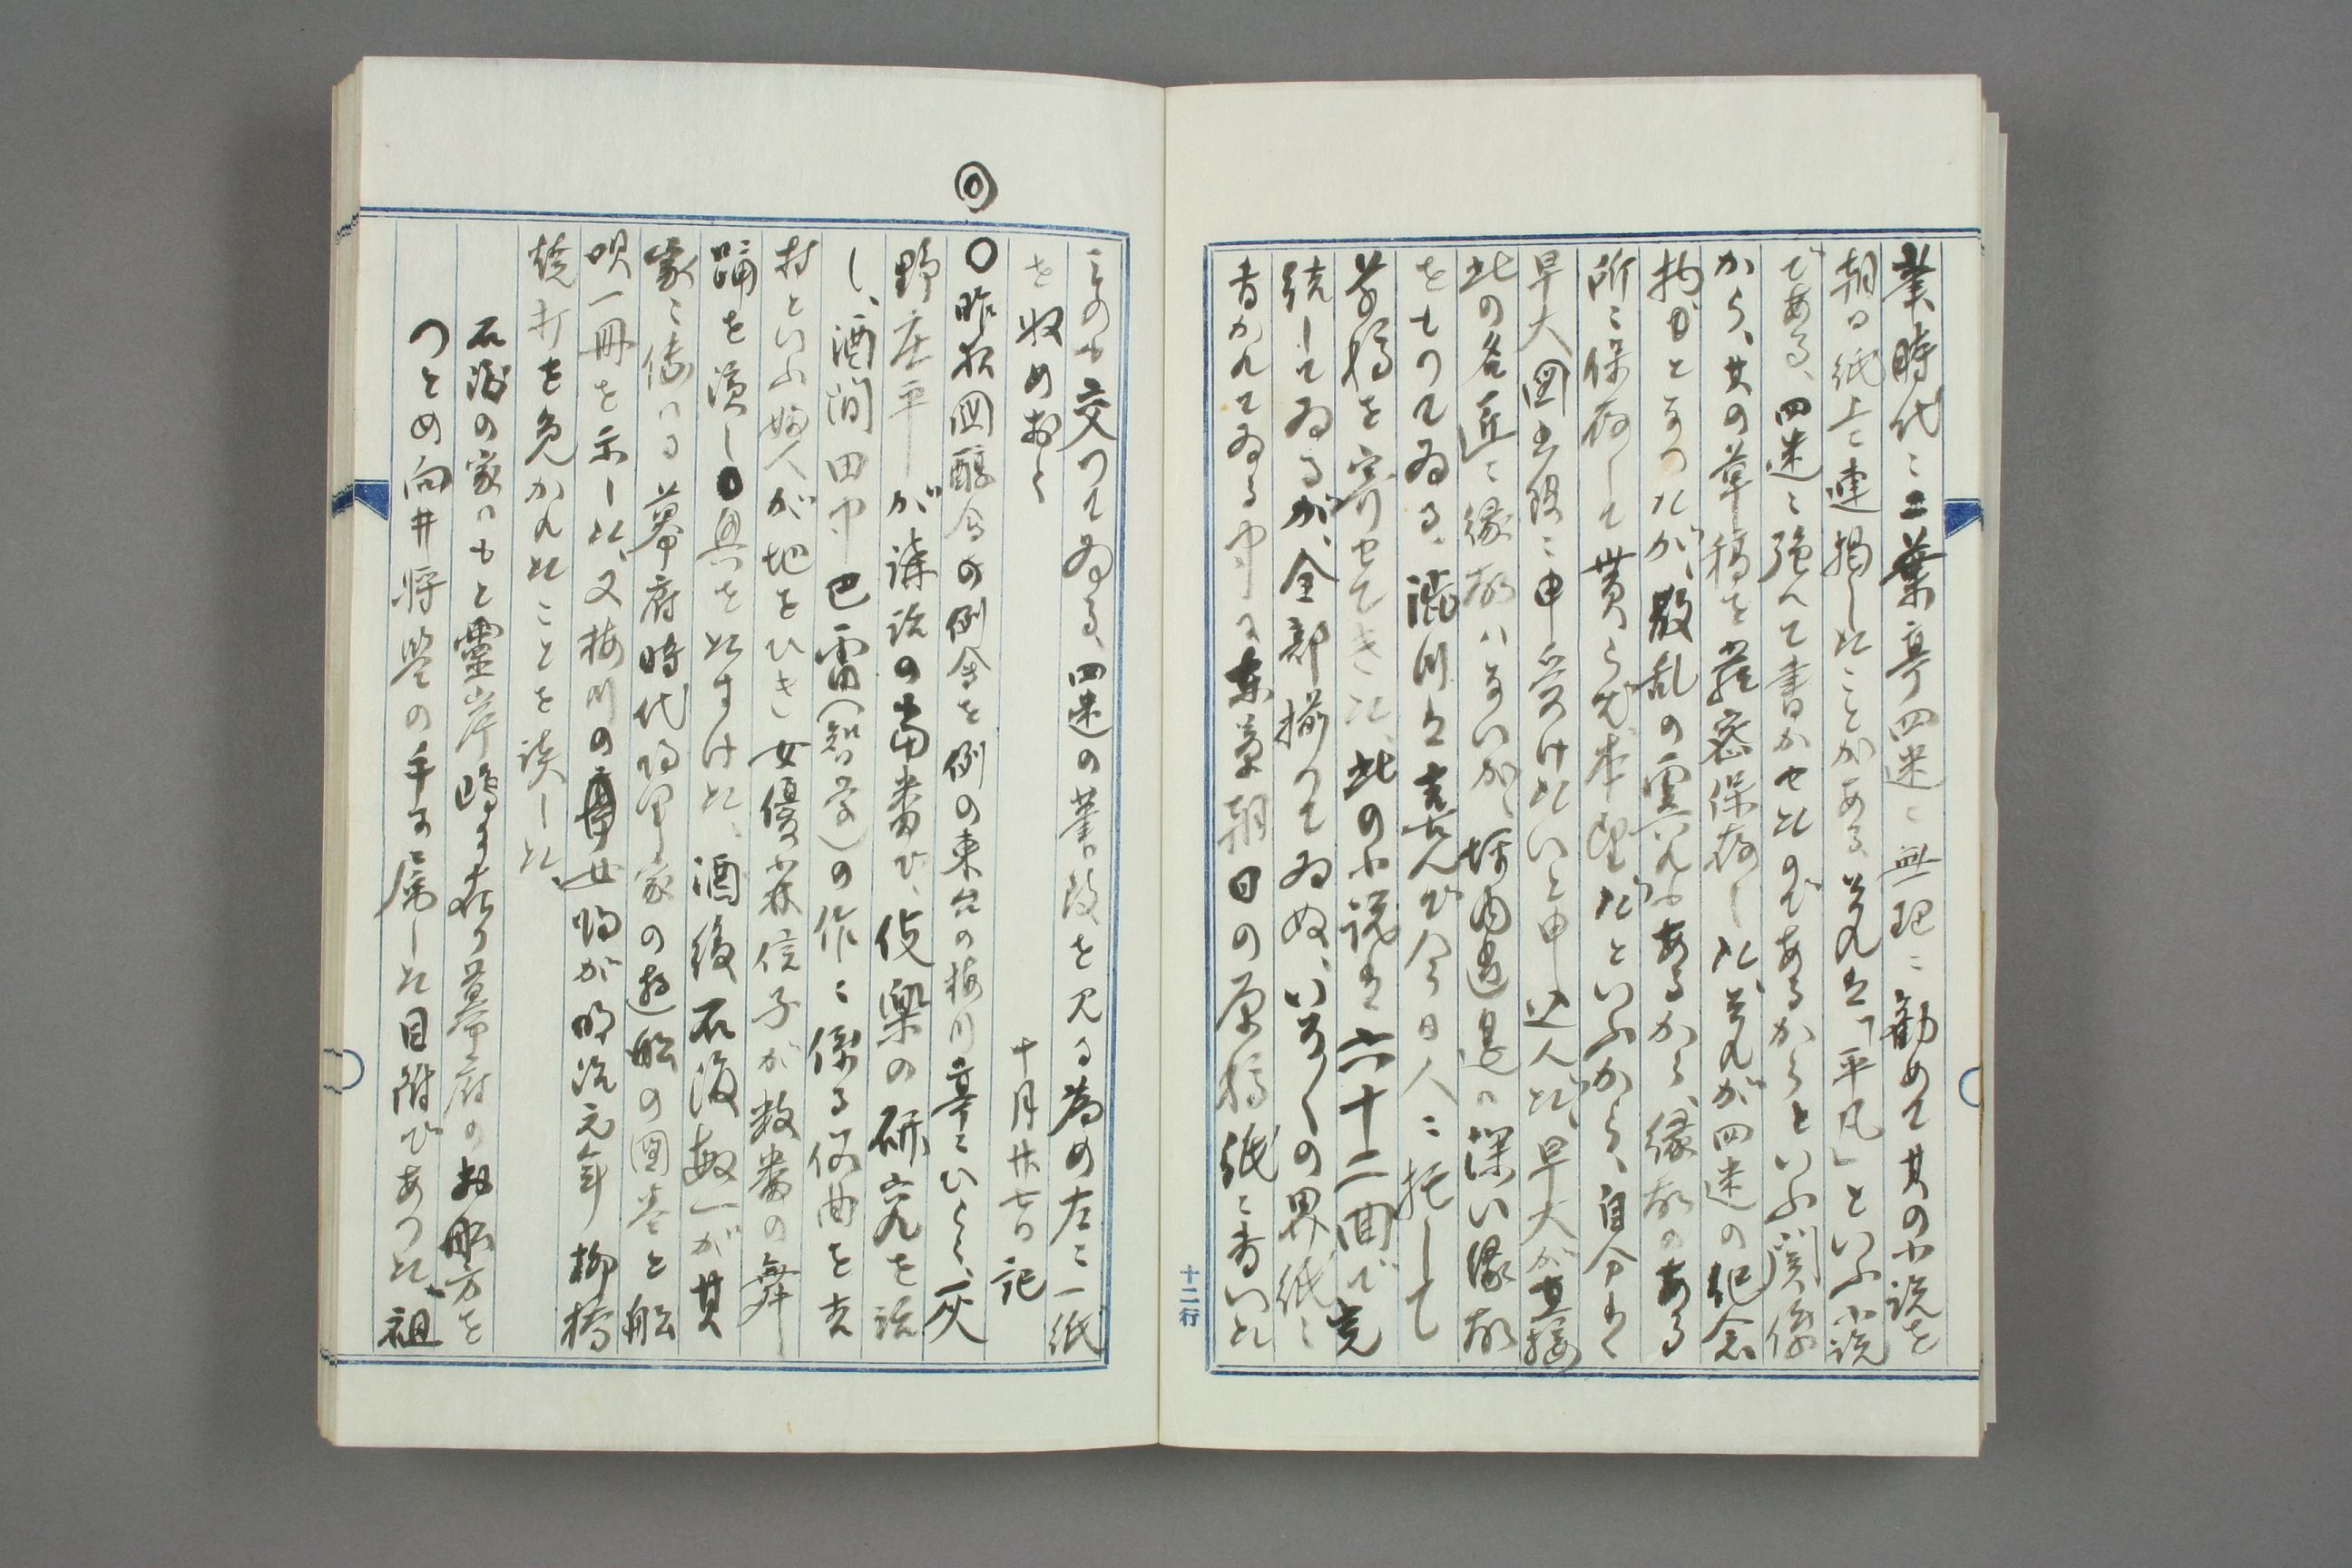 業時代ニ二葉亭四迷ニ無理ニ勧めて其の小説を
朝日紙上ニ連掲したことがある、其れは「平凡」といふ小説
である、四迷ニ強ひて書かせたのであるからといふ関係
から、其の草稿を厳密保存した、其れが四迷の紀念
物がとなつたが、散乱の虞れがあるから、縁故のある
所ニ保存して貰へば本望だといふから、自分は
早大図書館ニ申受けたいと申込んだ、早大が直接
此の名匠ニ縁故ハないが、坪内逍遥ハ深い縁故
をもつてゐる、渋川は喜んで今日人ニ托して
草稿を寄せてきた、此の小説は六十二回で完
結してゐるが、全部揃つてゐぬ、いろ〱の罫紙ニ
書かれてゐる中ニ東京朝日の原稿紙ニ書いた
ものも交つてゐる、四迷の筆蹟を見る為め左ニ一紙
を収めおく
十月廿七日記
◎
○昨夜図醇会の例会を例の東台の梅川亭ニひらく、灰
野庄平が講話の当番で、伎楽の研究を話
し、酒間田中巴雷(智学)の作ニ係る仮曲を
村といふ婦人が地をひき女優小林信子が数番の舞
踊を演し興をたすけた、酒後石渡敏一が其
家ニ伝はる幕府時代 家の遊船の図巻と船
唄一冊を示した、又梅川の 女将が明治元年柳橋
焼打を免かれたことを談した、
石渡の家ハもと霊岸島ニ在り幕府の御船方を
つとめ向井将監の手ニ属した目附であつた、祖
十二行